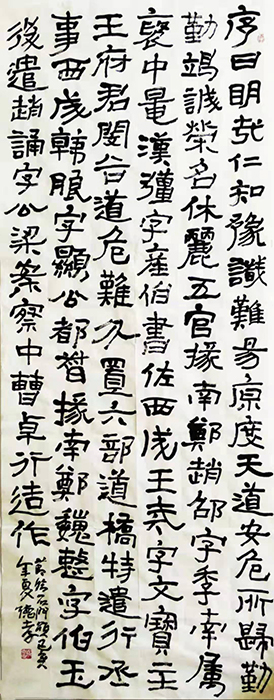 序曰明哉仁知豫識難易原度天道安危所歸勤
勤竭誠榮名休麗五官掾南鄭趙邵字季南屬
褒中晁漢彊字產伯書佐西成王戒字文寶主
王府君閔谷道危難分置六部道橋特遣行丞
事西成韓朖字顯公都督掾南鄭魏整字伯玉
後遣趙誦字公梁案察中曹卓行造作
石門頌
年夏